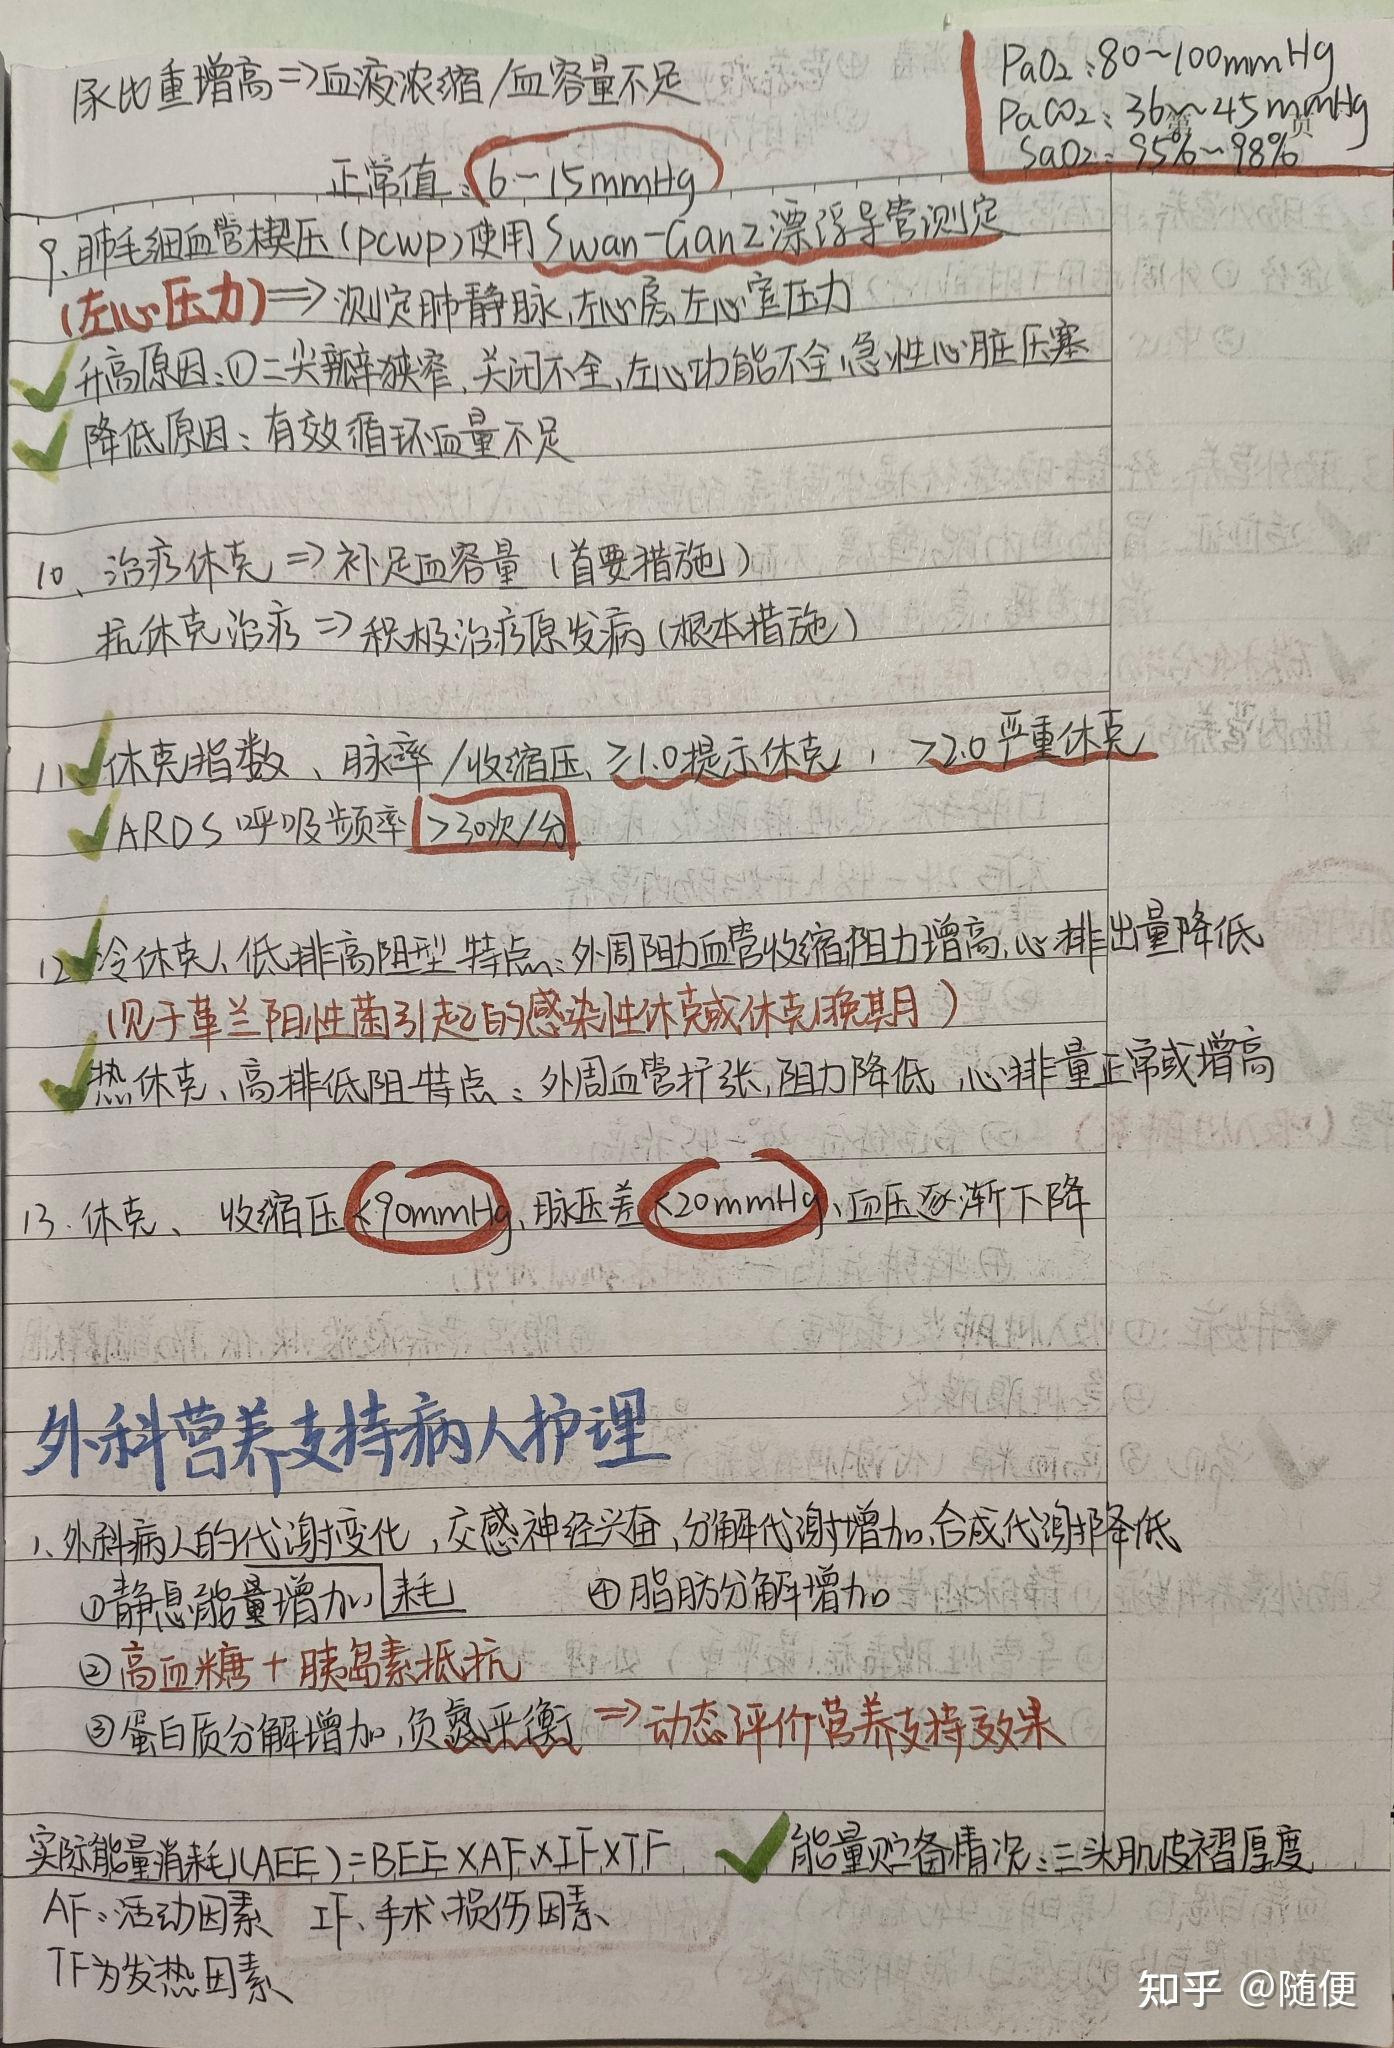 尿比重增高⇒血液浓缩/血容量不足
PaO2:80~100mmHg
PaCO2:36~45mmHg
第 页
SaO2:95%~98%
正常值:6~15mmHg
9、肺毛细血管楔压(pcwp)使用Swan-Ganz漂浮导管测定
(左心压力)⇒测定肺静脉、左心房、左心室压力
升高原因:①二尖瓣狭窄、关闭不全、左心功能不全、急性心脏压塞
降低原因:有效循环血量不足
10、治疗休克⇒补足血容量(首要措施)
抗休克治疗⇒积极治疗原发病(根本措施)
11、休克指数、脉率/收缩压、≥1.0提示休克,>2.0严重休克
ARDS呼吸频率>30次/分
12、冷休克、低排高阻型 特点:外周阻力血管收缩阻力增高、心排出量降低
(见于革兰阴性菌引起的感染性休克或休克晚期)
热休克、高排低阻 特点:外周血管扩张,阻力降低,心排量正常或增高
13.休克、 收缩压<90mmHg、脉压差<20mmHg、血压逐渐下降
外科营养支持病人护理
1、外科病人的代谢变化,交感神经兴奋、分解代谢增加、合成代谢降低
①静息能量增加 耗 ④脂肪分解增加
②高血糖+胰岛素抵抗
③蛋白质分解增加,负氮平衡⇒动态评价营养支持效果
实际能量消耗(AEE)=BEE×AF×IF×TF 能量贮备情况:三头肌皮褶厚度
AF:活动因素 IF、手术、损伤因素
TF为发热因素
知乎 @随便